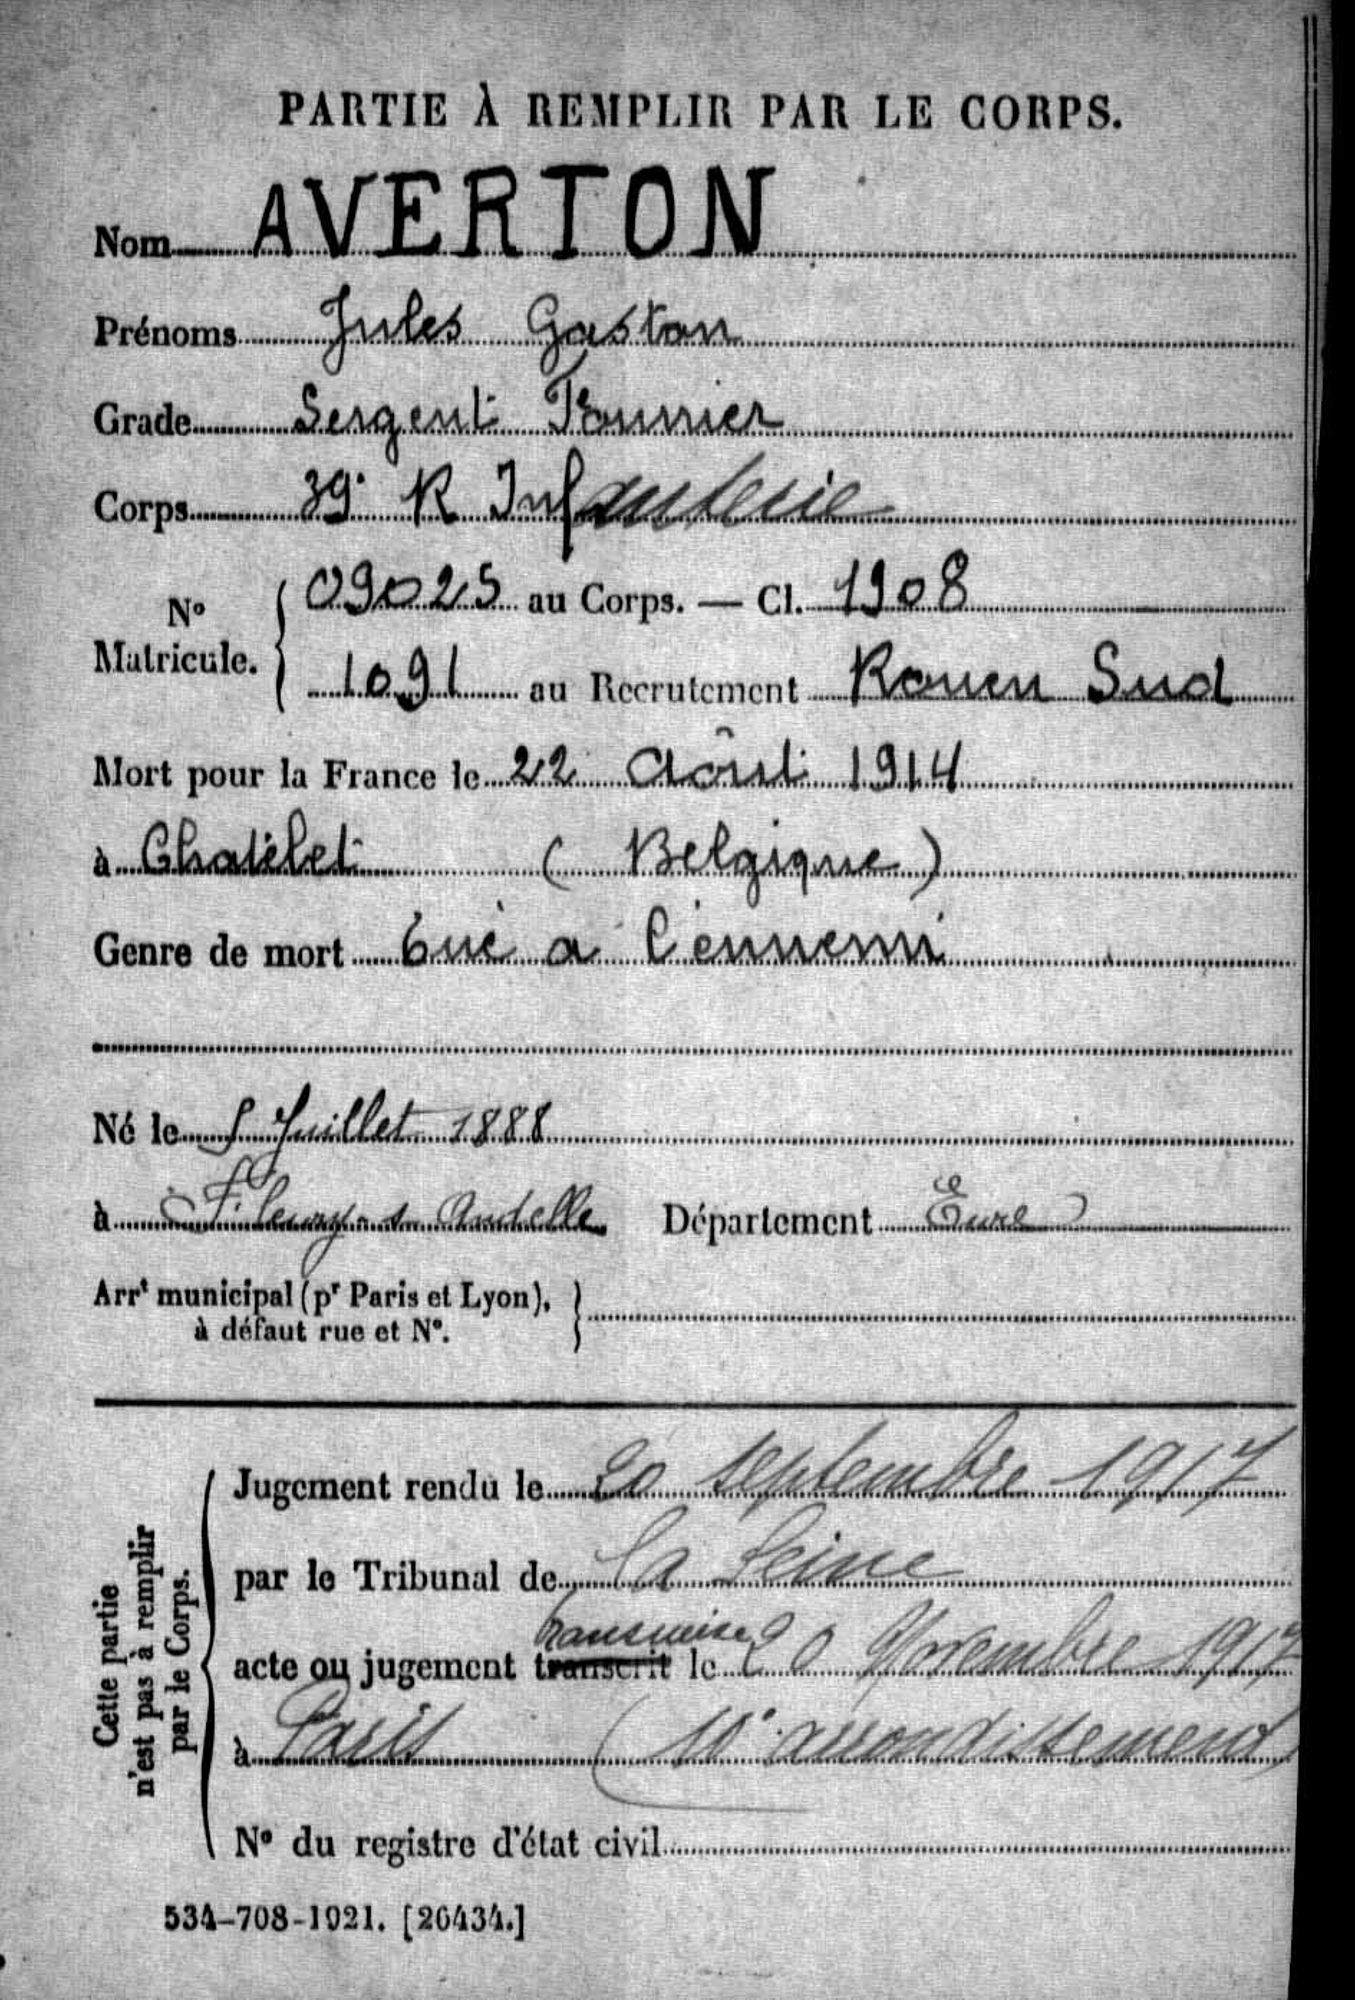 PARTIE À REMPLIR PAR LE CORPS.
Nom AVERTON
Prénoms Jules Gaston
Grade Sergent Fourrier
Corps 39e R Infanterie
N° Matricule. { 09025 au Corps. — Cl. 1908
1091 au Recrutement Rouen Sud
Mort pour la France le 22 Août 1914
à Chatelet ( Belgique )
Genre de mort Tué a l'ennemi
Né le 5 Juillet 1888
à Fleury-s-Andelle Département Eure
Arrt municipal (pr Paris et Lyon),
à défaut rue et N°.
Cette partie
n'est pas à remplir
par le Corps.
Jugement rendu le 20 septembre 1917
par le Tribunal de la Seine
transcrit
acte ou jugement transcrit le 20 Novembre 1917
à Paris (10e arrondissement)
N° du registre d'état civil
534-708-1921. [26434.]